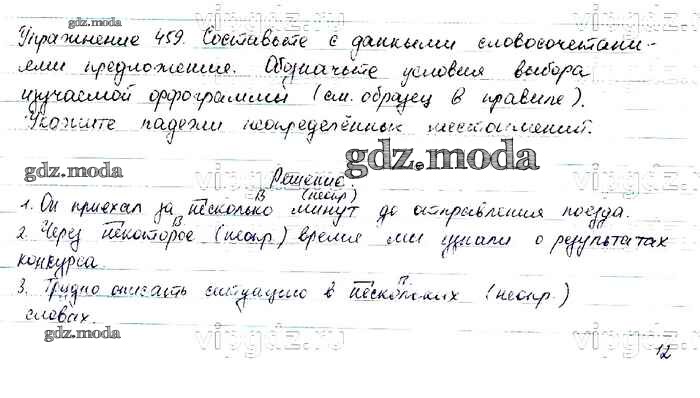 gdz.moda
Упражнение 459. Составьте с данными словосочетани-
ями предложения. Обозначьте условия выбора
изучаемой орфограммы (см. образец в правиле).
Укажите падежи неопределённых местоимений.
gdz.moda
gdz.moda
Решение.
В (неопр)
1. Он приехал за несколько минут до отправления поезда.
В
2. Через некоторое (неопр) время мы узнали о результатах
конкурса.
П
3. Трудно описать ситуацию в нескольких (неопр.)
словах.
gdz.moda
vipgdz.ru
12